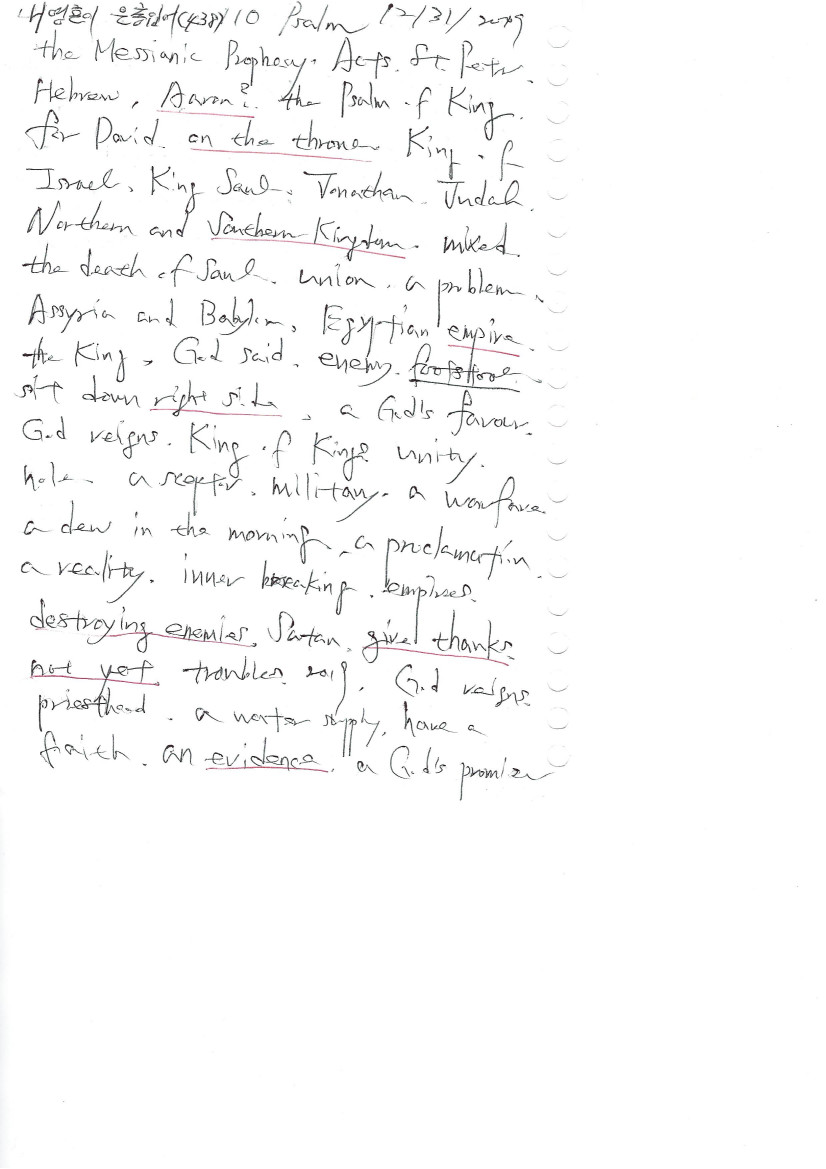 내영혼이 은총입어(438) 10 Psalm 12/31/2019
the Messianic Prophacy. Acts. St. Petr.
Hebrew, Aaron?. the Psalm of King.
for David. on the throne. King of
Israel, King Saul. Jonathan. Judah.
Northern and Southern Kingdom. mixed.
the death of Saul. union. a problem.
Assyria and Babylon, Egyptian empire.
the King, God said. enemy. footstool.
sit down right side, a God's favour.
God reigns. King of Kings unity.
hole. a scepter. military. a warfare
a dew in the morning, a proclamation.
a reality. inner breaking. empires.
destroying enemies. Satan. give thanks.
not yet troubles. 2019. God reigns
priesthood. a water supply, have a
faith. an evidence. a God's promise